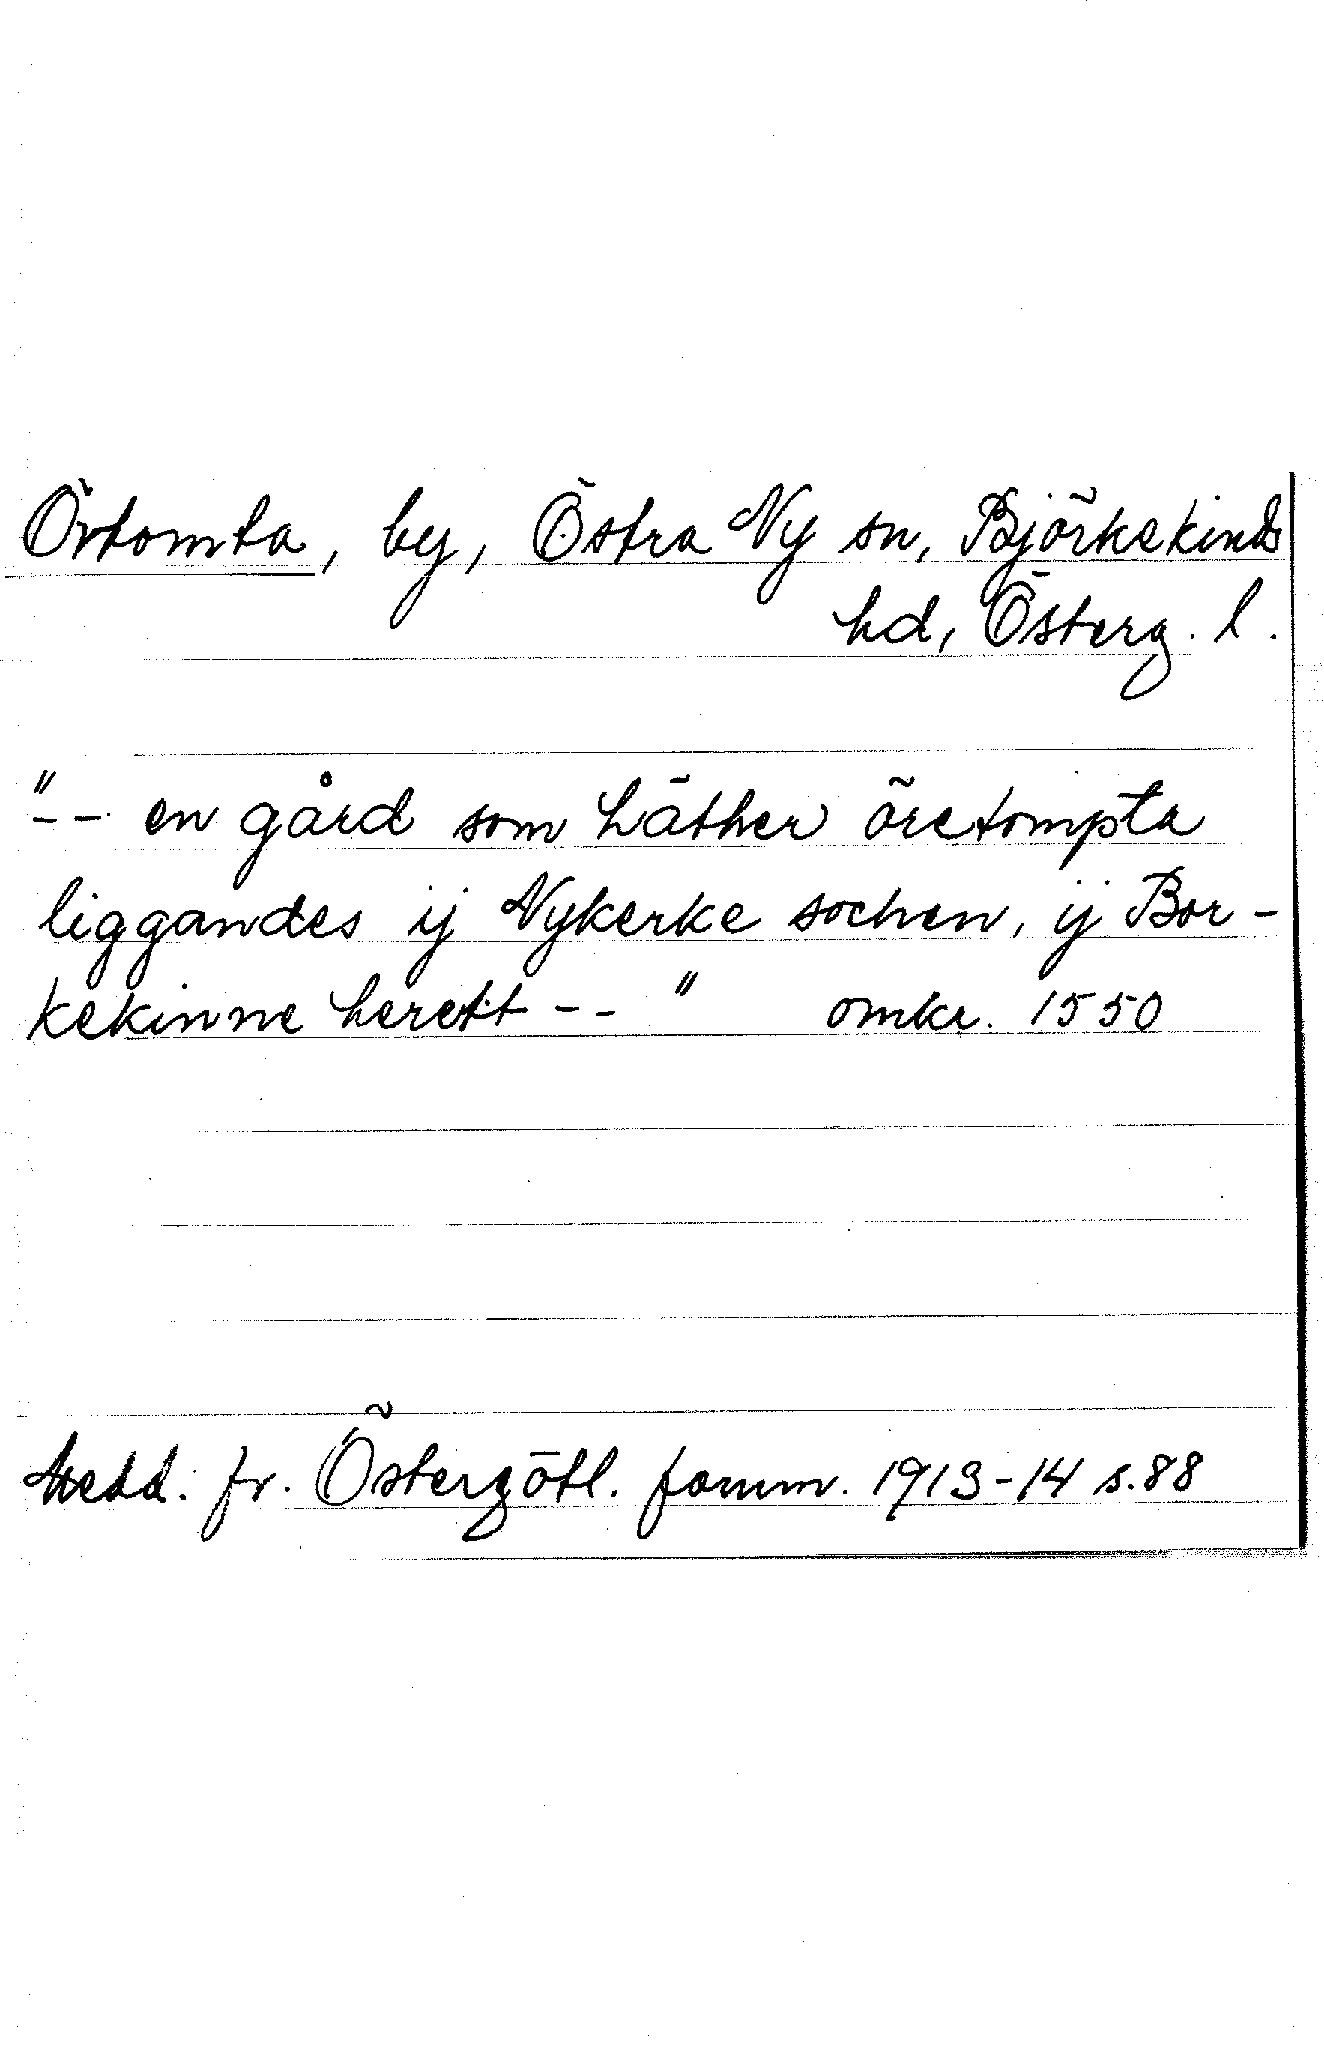 Örtomta, by, Östra Ny sn, Björkekinds
hd, Österg. l.
"-- en gård som häther öretompta
liggandes ij Nykerke sochen, ij Bor-
kekinne herett --" omkr. 1550
Medd. fr. Östergötl. fornm. 1913-14 s.88